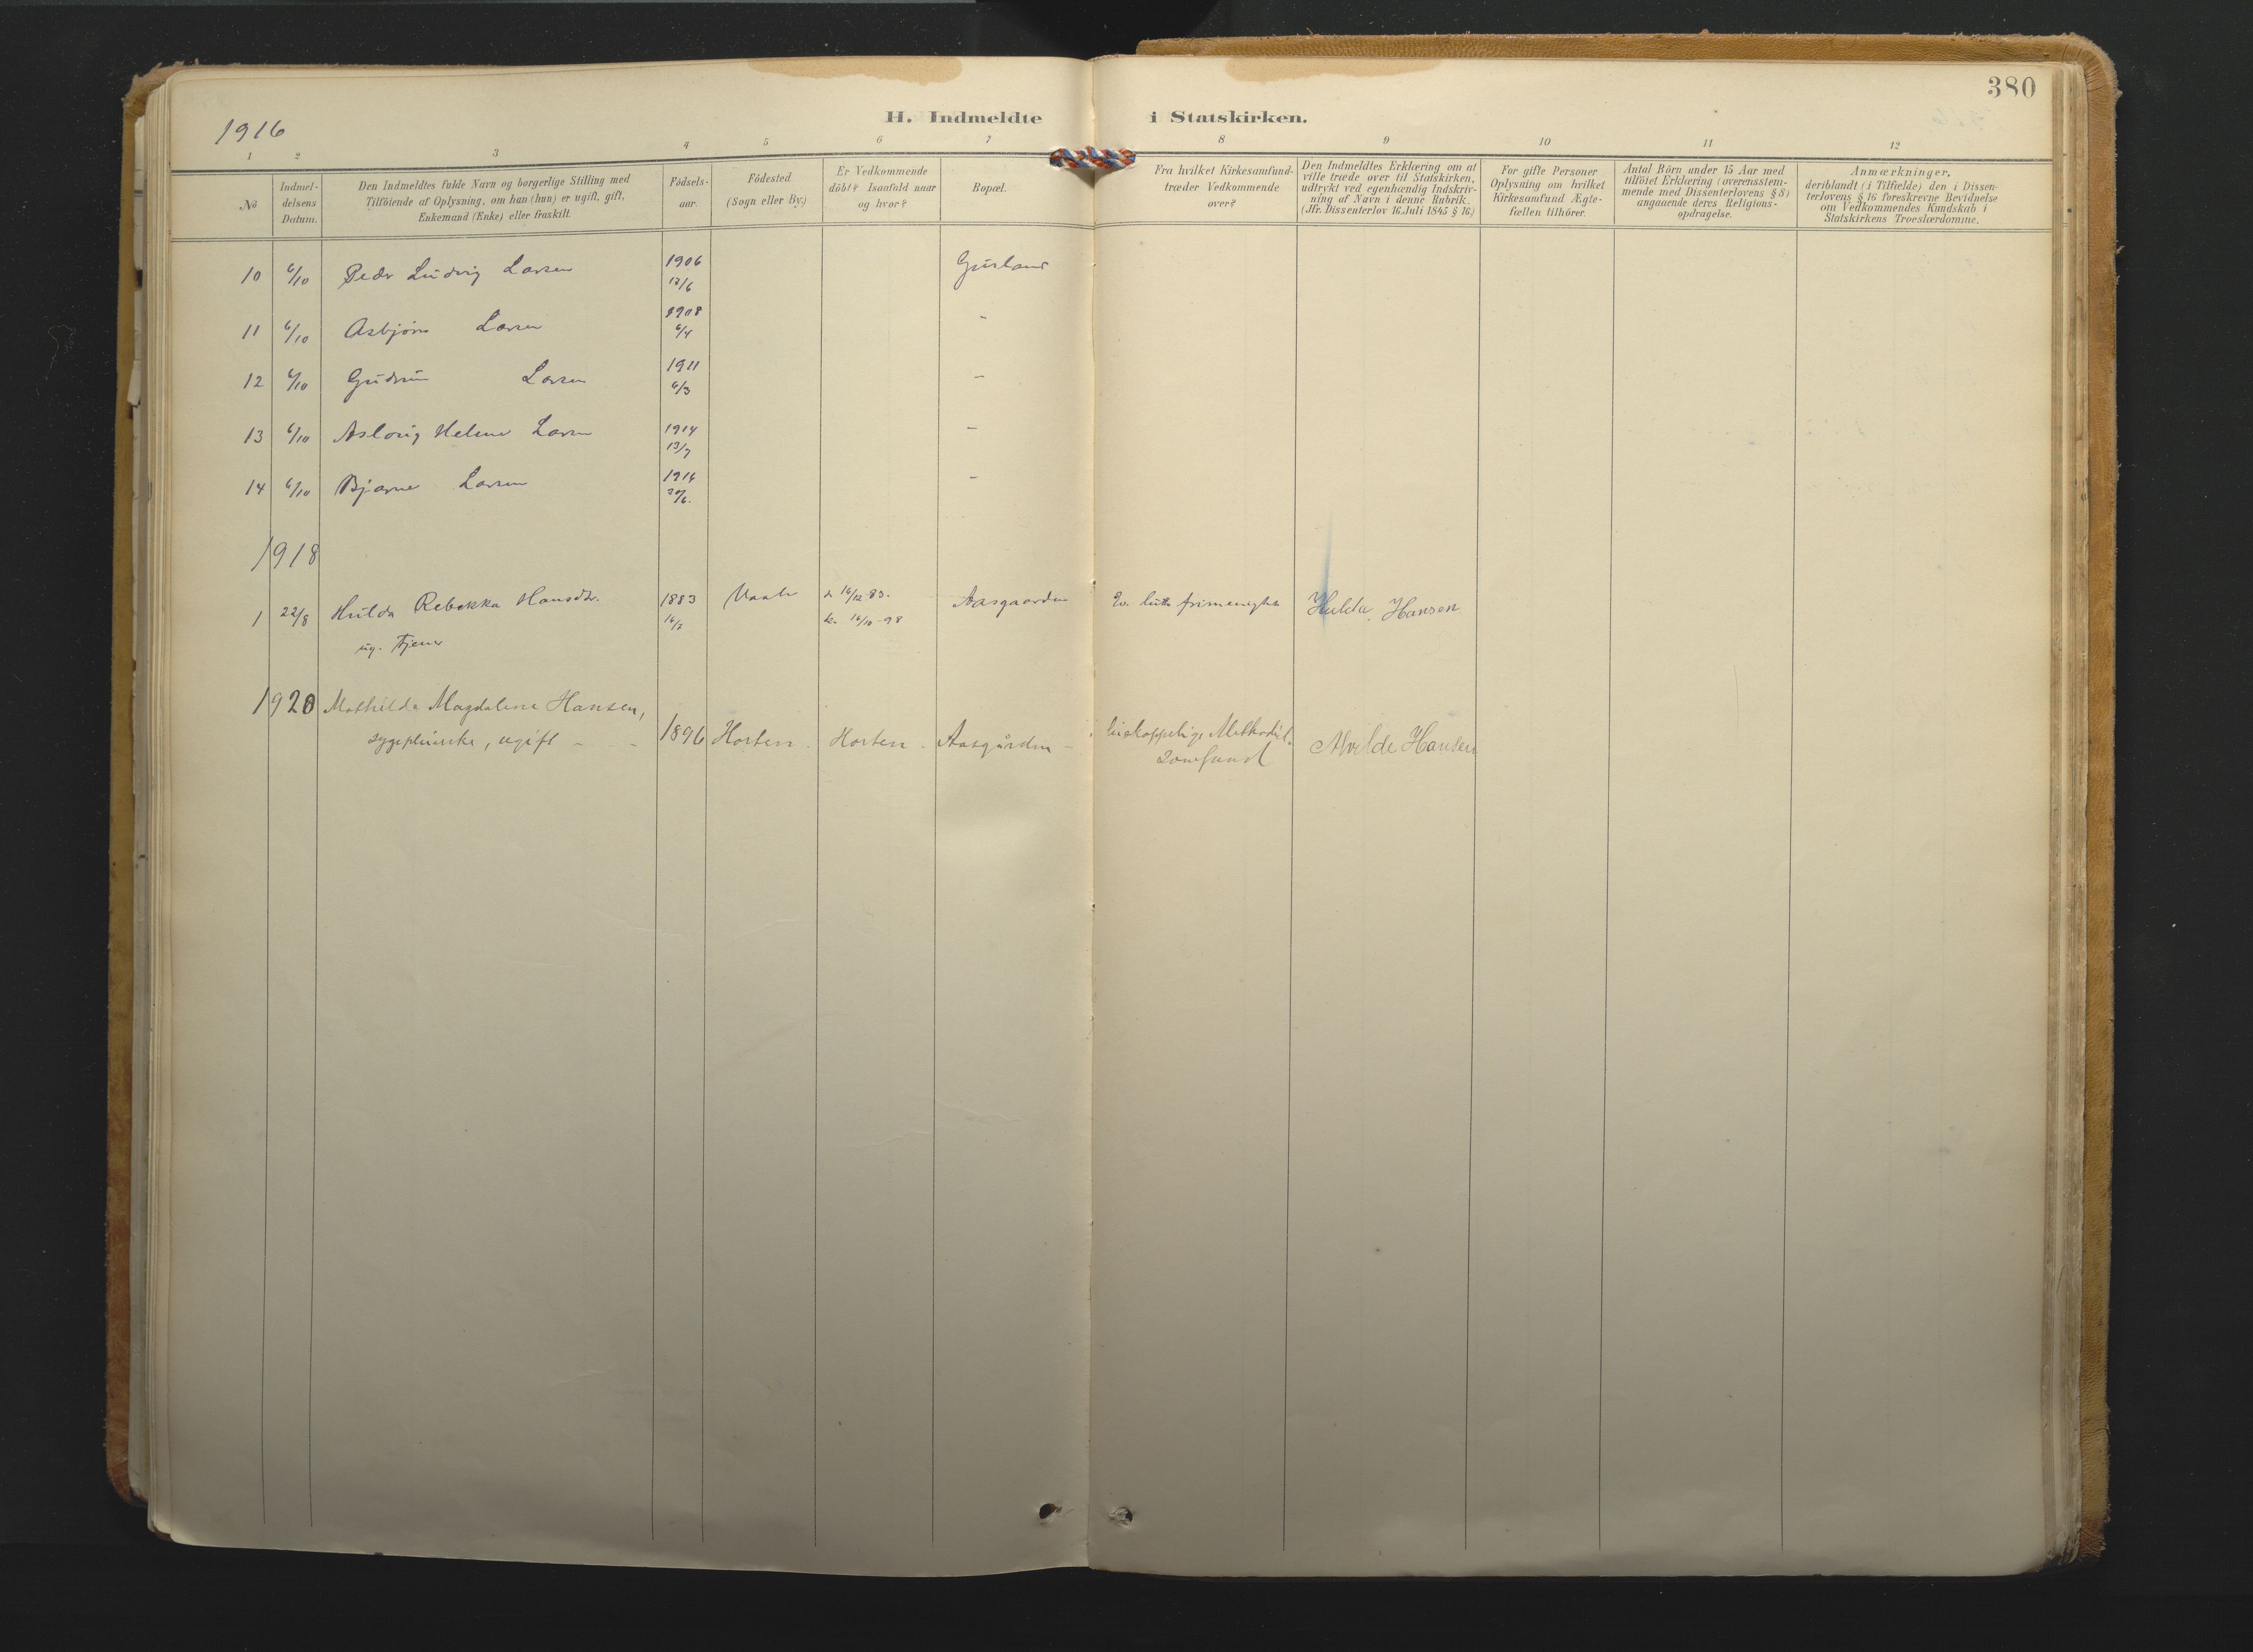 380
1916
H. Indmeldte i Statskirken.
1 2 3 4 5 6 7 8 9 10 11 12
No
Indmel-
delsens
Datum.
Den Indmeldtes fulde Navn og borgerlige Stilling med
Tilföiende af Oplysning, om han (hun) er ugift, gift,
Enkemand (Enke) eller fraskilt.
Födsels-
aar.
Födested
(Sogn eller By.)
Er Vedkommende
döbt? Isaafald naar
og hvor?
Bopæl.
Fra hvilket Kirkesamfund
træder Vedkommende
over?
Den Indmeldtes Erklæring om at
ville træde over til Statskirken,
udtrykt ved egenhændig Indskriv-
ning af Navn i denne Rubrik.
(Jfr. Dissenterlov 16. Juli 1845 § 16.)
For gifte Personer
Oplysning om hvilket
Kirkesamfund Ægte-
fællen tilhörer.
Antal Börn under 15 Aar med
tilföiet Erklæring (overensstem-
mende med Dissenterlovens § 8)
angaaende deres Religions-
opdragelse.
Anmærkninger,
deriblandt (i Tilfælde) den i Dissen-
terlovens § 16 foreskrevne Bevidnelse
om Vedkommendes Kundskab i
Statskirkens Troeslærdomme.
10 6/10 Peder Ludvig Larsen 1906
13/6
11 6/10 Asbjørn Larsen 1908 -
6/4
12 6/10 Gudrun Larsen 1911 -
6/3
13 6/10 Aslaug Helene Larsen 1914 -
13/7
14 6/10 Bjarne Larsen 1916 -
1918
1 22/8 Hulda Rebekka Hansdtr. 1883 Vaale d. 16/12 83. Aasgaarden Ev. luth. frimenighet Hulda Hansen
16/7 k. 16/10-98
ug. Tjener
1920 Mathilde Magdalene Hansen,
sygepleierske, ugift - - 1896 Horten Horten - Aasgården - biskoppelige Methodist- Alvilde Hansen
samfund